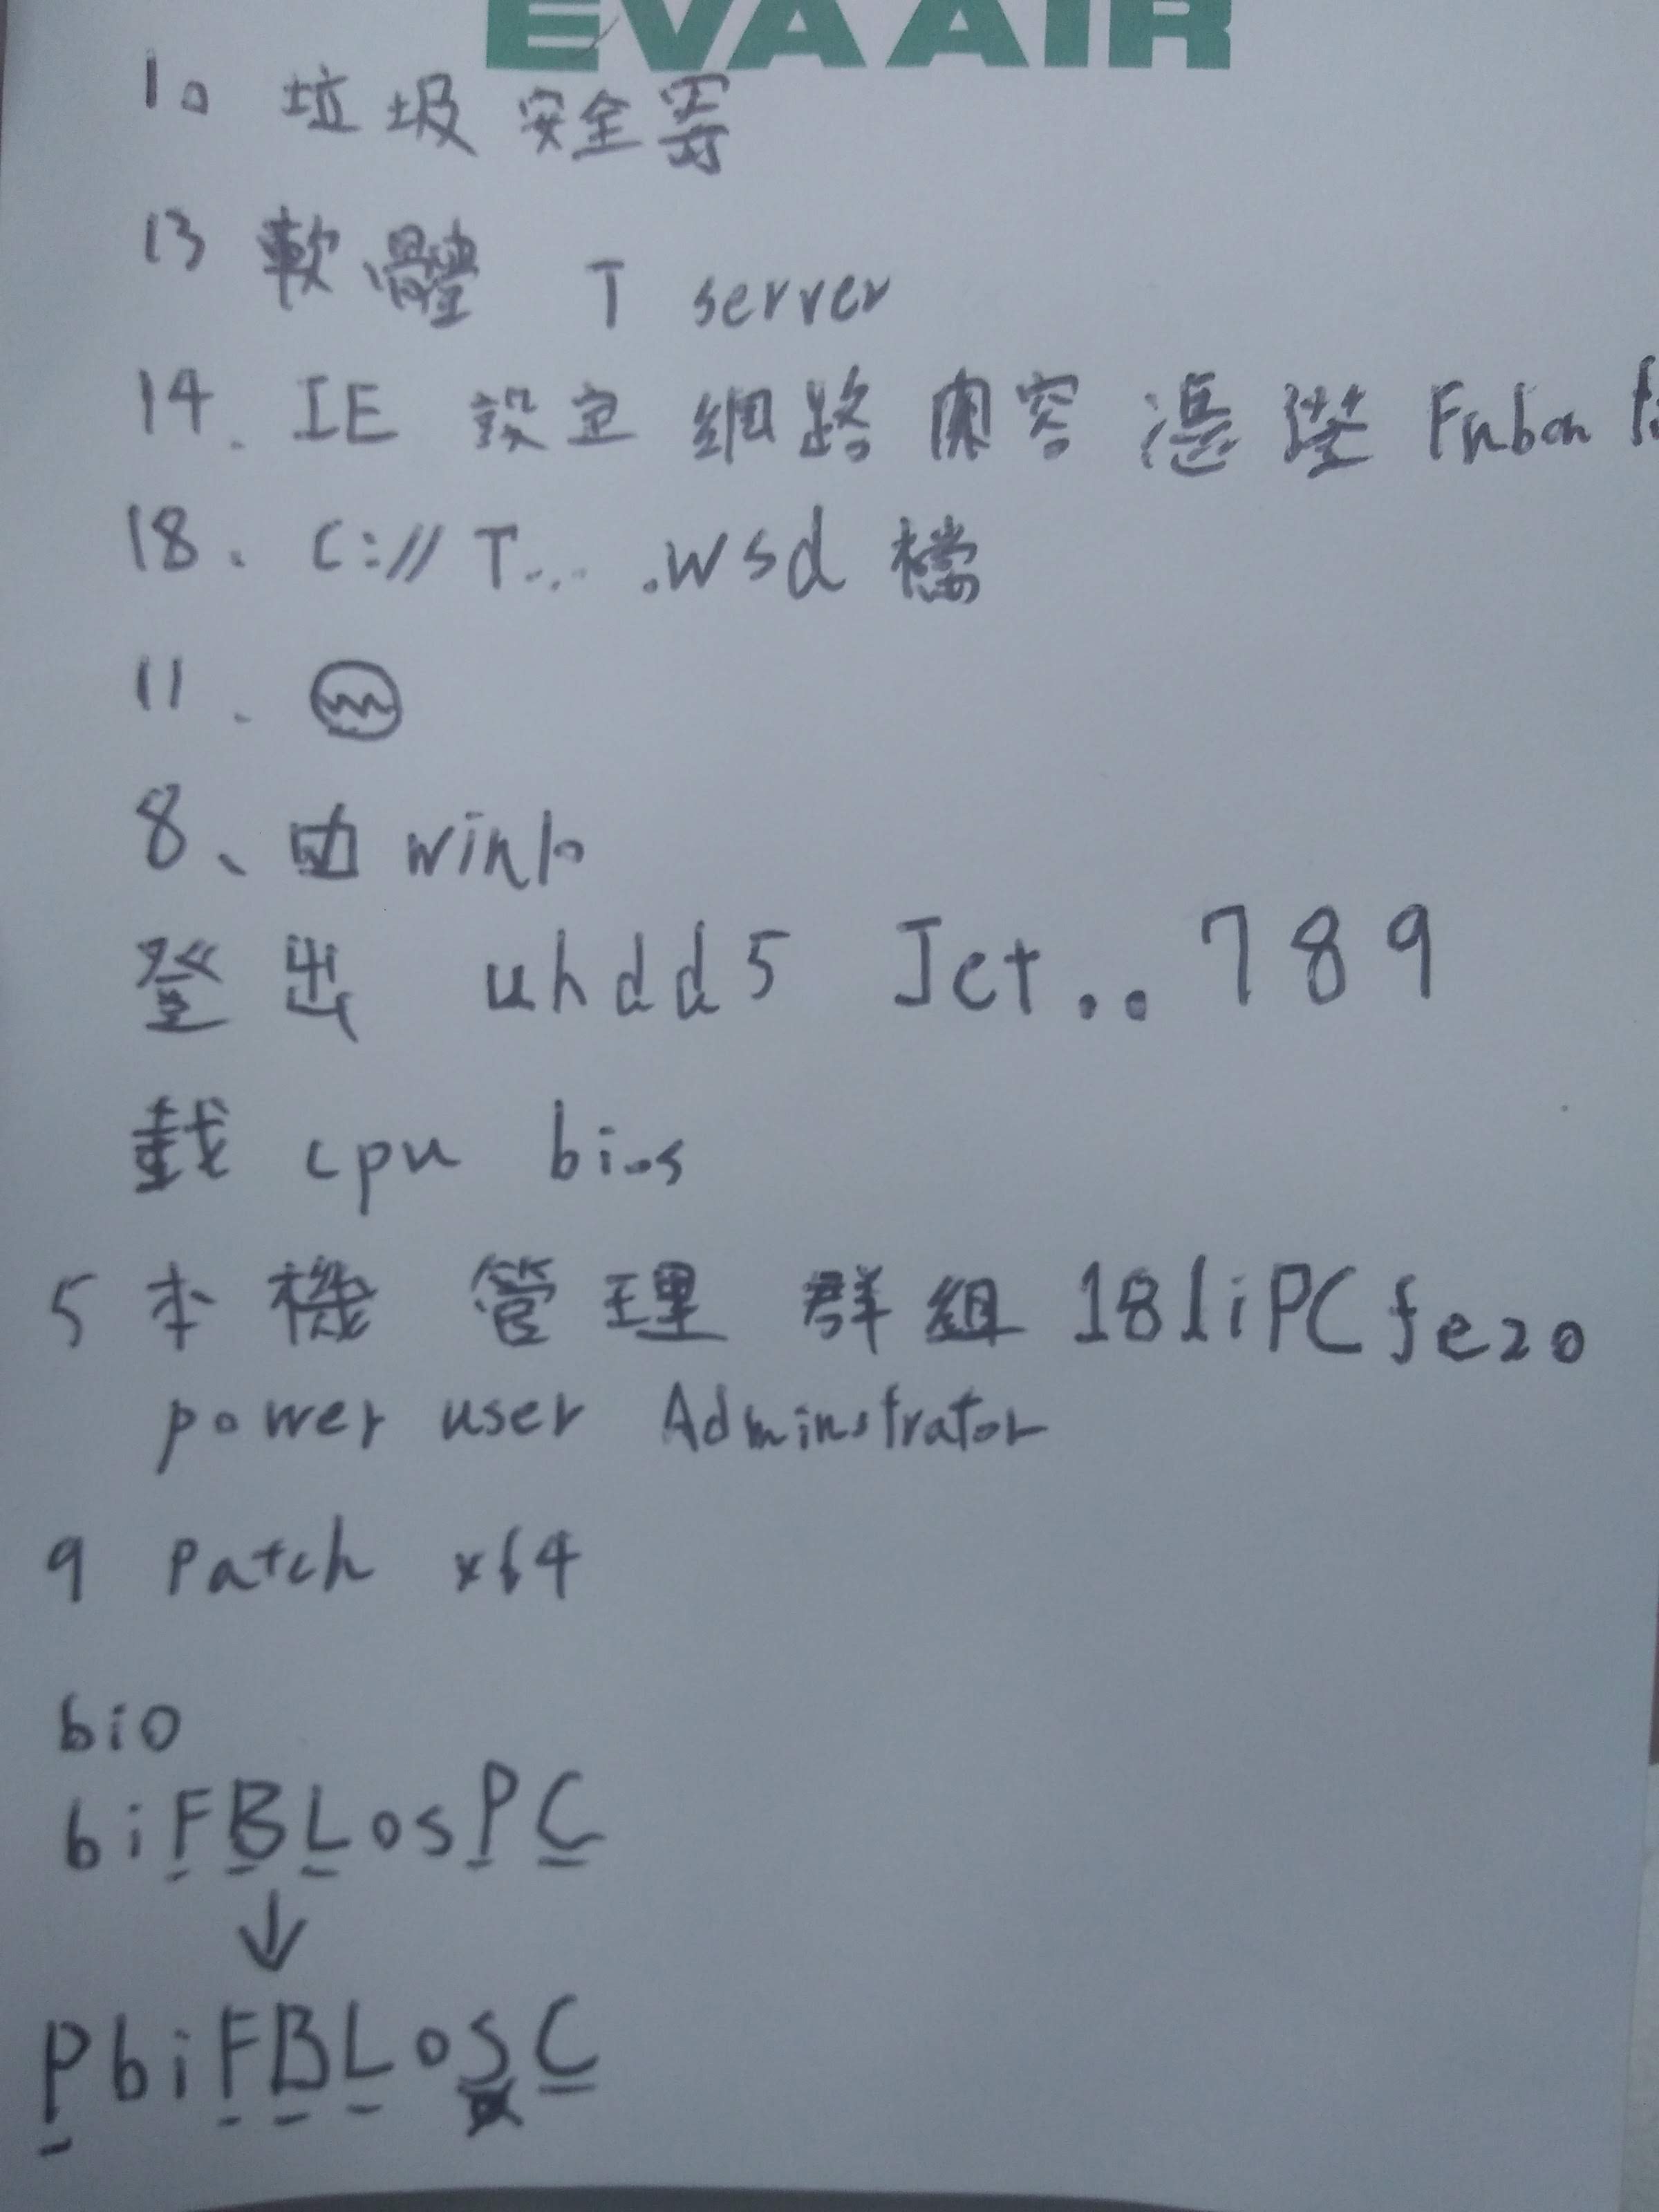 EVA AIR
10 垃圾 安全等
13 軟體 T server
14. IE 設定 網路 內容 憑證 Fubon
18、C:// T.... .wsd 檔
11.
8、由 win10
登出 uhdd5 Jct..789
載 cpu bios
5 本機 管理 群組 181iPCfe20
power user Adminstrator
9 Patch x64
bio
biFBLosPC
↓
PbiFBLosC